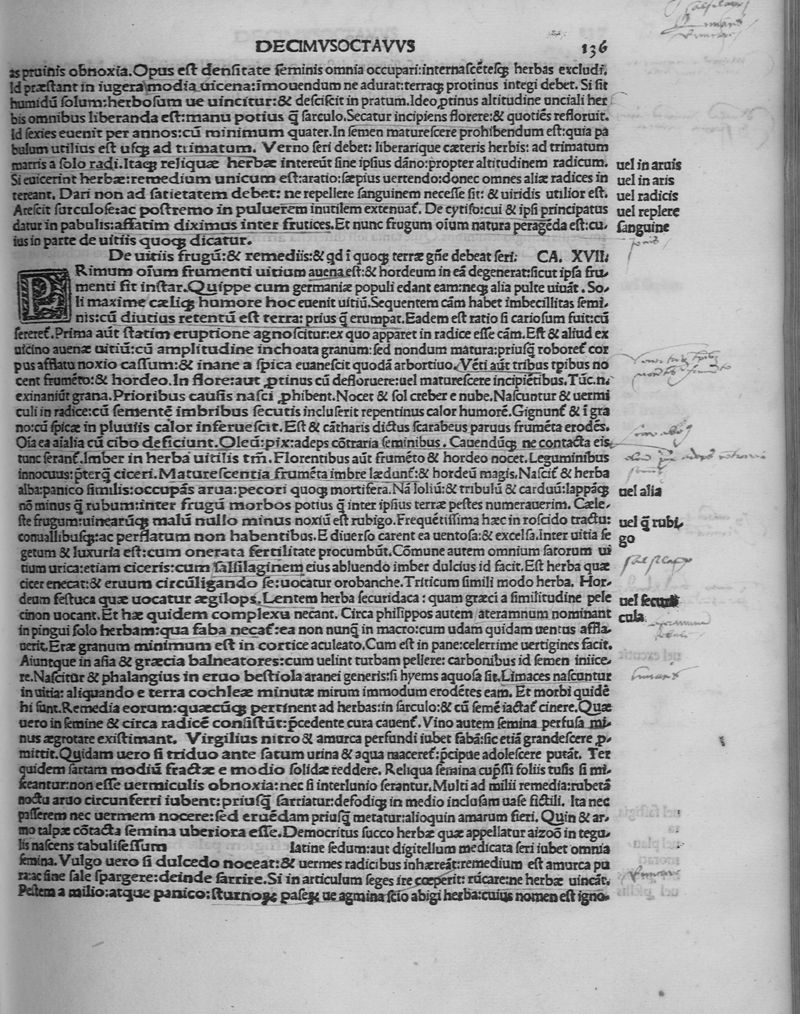 DECIMVSOCTAVVS 136
as pruinis obnoxia.Opus eſt denſitate ſeminis omnia occupari:internaſcẽteſqꝫ herbas excludi.
Id præſtant in iugera modia uicena:ĩmouendum ne adurat:terraqꝫ protinus integi debet. Si ſit
humidũ ſolum:herboſum ue uincitur:& deſciſcit in pratum.Ideo ꝓtinus altitudine unciali her
bis omnibus liberanda eſt:manu potius q̃ ſarculo.Secatur incipiens florere:& quotiẽs refloruit.
Id ſexies euenit per annos:cũ minimum quater.In ſemen matureſcere prohibendum eſt:quia pa
bulum utilius eſt uſqꝫ ad trimatum. Verno ſeri debet: liberarique cæteris herbis: ad trimatum
marris a ſolo radi.Itaqꝫ reliquæ herbæ intereũt ſine ipſius dãno:propter altitudinem radicum.
Si euicerint herbæ:remedium unicum eſt:aratio:ſæpius uertendo:donec omnes aliæ radices in
tereant. Dari non ad ſatietatem debet: ne repellere ſanguinem neceſſe ſit: & uiridis utilior eſt.
Areſcit ſurculoſe:ac poſtremo in puluerem inutilem extenuat̃. De cytiſo:cui & ipſi principatus
datur in pabulis:affatim diximus inter frutices.Et nunc frugum oĩum natura peragẽda eſt:cu
ius in parte de uitiis quoqꝫ dicatur.
De uitiis frugũ:& remediis:& qd ĩ quoqꝫ terræ gñe debeat ſeri: CA. XVII.
PRimum oĩum frumenti uitium auena eſt:& hordeum in eã degenerat:ſicut ipſa fru
menti ſit inſtar.Quippe cum germaniæ populi edant eam:neqꝫ alia pulte uiuãt. So
li maxime cæliqꝫ humore hoc euenit uitiũ.Sequentem cãm habet imbecillitas ſemi
nis:cũ diutius retentũ eſt terra: prius q̃ erumpat.Eadem eſt ratio ſi carioſum fuit:cũ
ſereret̃.Prima aũt ſtatim eruptione agnoſcitur:ex quo apparet in radice eſſe cãm.Eſt & aliud ex
uicino auenæ uitiũ:cũ amplitudine inchoata granum:ſed nondum matura:priuſq̃ roboret̃ cor
pus afflatu noxio caſſum:& inane a ſpica euaneſcit quodã arbortiuo.Vẽti aũt tribus tpibus no
cent frumẽto:& hordeo.In flore:aut ꝓtinus cũ defloruere:uel matureſcere incipiẽtibus.Tũc.n.
exinaniũt grana.Prioribus cauſis naſci ꝓhibent.Nocet & ſol creber e nube.Naſcuntur & uermi
culi in radice:cũ ſementẽ imbribus ſecutis incluſerit repentinus calor humorẽ.Gignunt̃ & ĩ gra
no:cũ ſpicæ in pluuiis calor inferueſcit.Eſt & cãtharis dictus ſcarabeus paruus frumẽta erodẽs.
Oĩa ea aĩalia cũ cibo deficiunt.Oleũ:pix:adeps cõtraria ſeminibus. Cauendũqꝫ ne contacta eis
tunc ſerant̃.Imber in herba utilis tm̃. Florentibus aũt frumẽto & hordeo nocet.Leguminibus
innocuus:p̃terq̃ ciceri.Matureſcentia frumẽta imbre lædunt̃:& hordeũ magis.Naſcit̃ & herba
alba:panico ſimilis:occupãs arua:pecori quoqꝫ mortifera.Nã loliũ:& tribulũ & carduũ:lappãqꝫ
nõ minus q̃ rubum:inter frugũ morbos potius q̃ inter ipſius terræ peſtes numerauerim. Cæle
ſte frugum:uinearũqꝫ malũ nullo minus noxiũ eſt rubigo.Frequẽtiſſima hæc in roſcido tractu:
conuallibuſqꝫ:ac perflatum non habentibus.E diuerſo carent ea uentoſa:& excelſa.Inter uitia ſe
getum & luxuria eſt:cum onerata fertilitate procumbũt.Cõmune autem omnium ſatorum ui
tium urica:etiam ciceris:cum ſalſilaginem eius abluendo imber dulcius id facit.Eſt herba quæ
cicer enecat:& eruum circũligando ſe:uocatur orobanche.Triticum ſimili modo herba. Hor
deum feſtuca quæ uocatur ægilops.Lentem herba ſecuridaca: quam græci a ſimilitudine pele
cinon uocant.Et hæ quidem complexu necant. Circa philippos autem ateramnum nominant
in pingui ſolo herbam:qua faba necat̃:ea non nunq̃ in macro:cum udam quidam uentus affla
uerit.Eræ granum minimum eſt in cortice aculeato.Cum eſt in pane:celerrime uertigines facit.
Aiuntque in aſia & græcia balneatores:cum uelint turbam pellere: carbonibus id ſemen iniice
re.Naſcitur & phalangius in eruo beſtiola aranei generis:ſi hyems aquoſa ſit.Limaces naſcuntur
in uitia: aliquando e terra cochleæ minutæ mirum immodum erodẽtes eam. Et morbi quidẽ
hi ſunt.Remedia eorum:quæcũqꝫ pertinent ad herbas:in ſarculo:& cũ ſemẽ iactat̃ cinere.Quæ
uero in ſemine & circa radicẽ conſiſtũt:p̃cedente cura cauent̃.Vino autem ſemina perfuſa mi
nus ægrotare exiſtimant. Virgilius nitro & amurca perfundi iubet fabã:ſic etiã grandeſcere ꝓ
mittit.Quidam uero ſi triduo ante ſatum urina & aqua maceret̃:p̃cipue adoleſcere putãt. Ter
quidem ſartam modiũ fractæ e modio ſolidæ reddere. Reliqua ſemina cup̃ſſi foliis tuſis ſi mi
ſceantur:non eſſe uermiculis obnoxia:nec ſi interlunio ſerantur.Multi ad milii remedia:rubetã
noctu aruo circunferri iubent:priuſq̃ ſarriatur:defodiqꝫ in medio incluſam uaſe fictili. Ita nec
paſſerem nec uermem nocere:ſed eruẽdam priuſq̃ metatur:alioquin amarum fieri. Quin & ar
mo talpæ cõtacta ſemina uberiora eſſe.Democritus ſucco herbæ quæ appellatur aizoõ in tegu
lis naſcens tabuliſeſſum latine ſedum:aut digitellum medicata ſeri iubet omnia
ſemina. Vulgo uero ſi dulcedo noceat:& uermes radicibus inhæreãt:remedium eſt amurca pu
ra:ac ſine ſale ſpargere:deinde ſarrire.Si in articulum ſeges ire cœperit: rũcare:ne herbæ uincãt.
Peſtem a milio:atque panico:ſturnoꝝ paſeꝝ ue agmina ſcio abigi herba:cuius nomen eſt igno
uel in aruis
uel in aris
uel radicis
uel replere
ſanguine
uel alia
uel q̃ rubi
go
uel ſecuri
cula